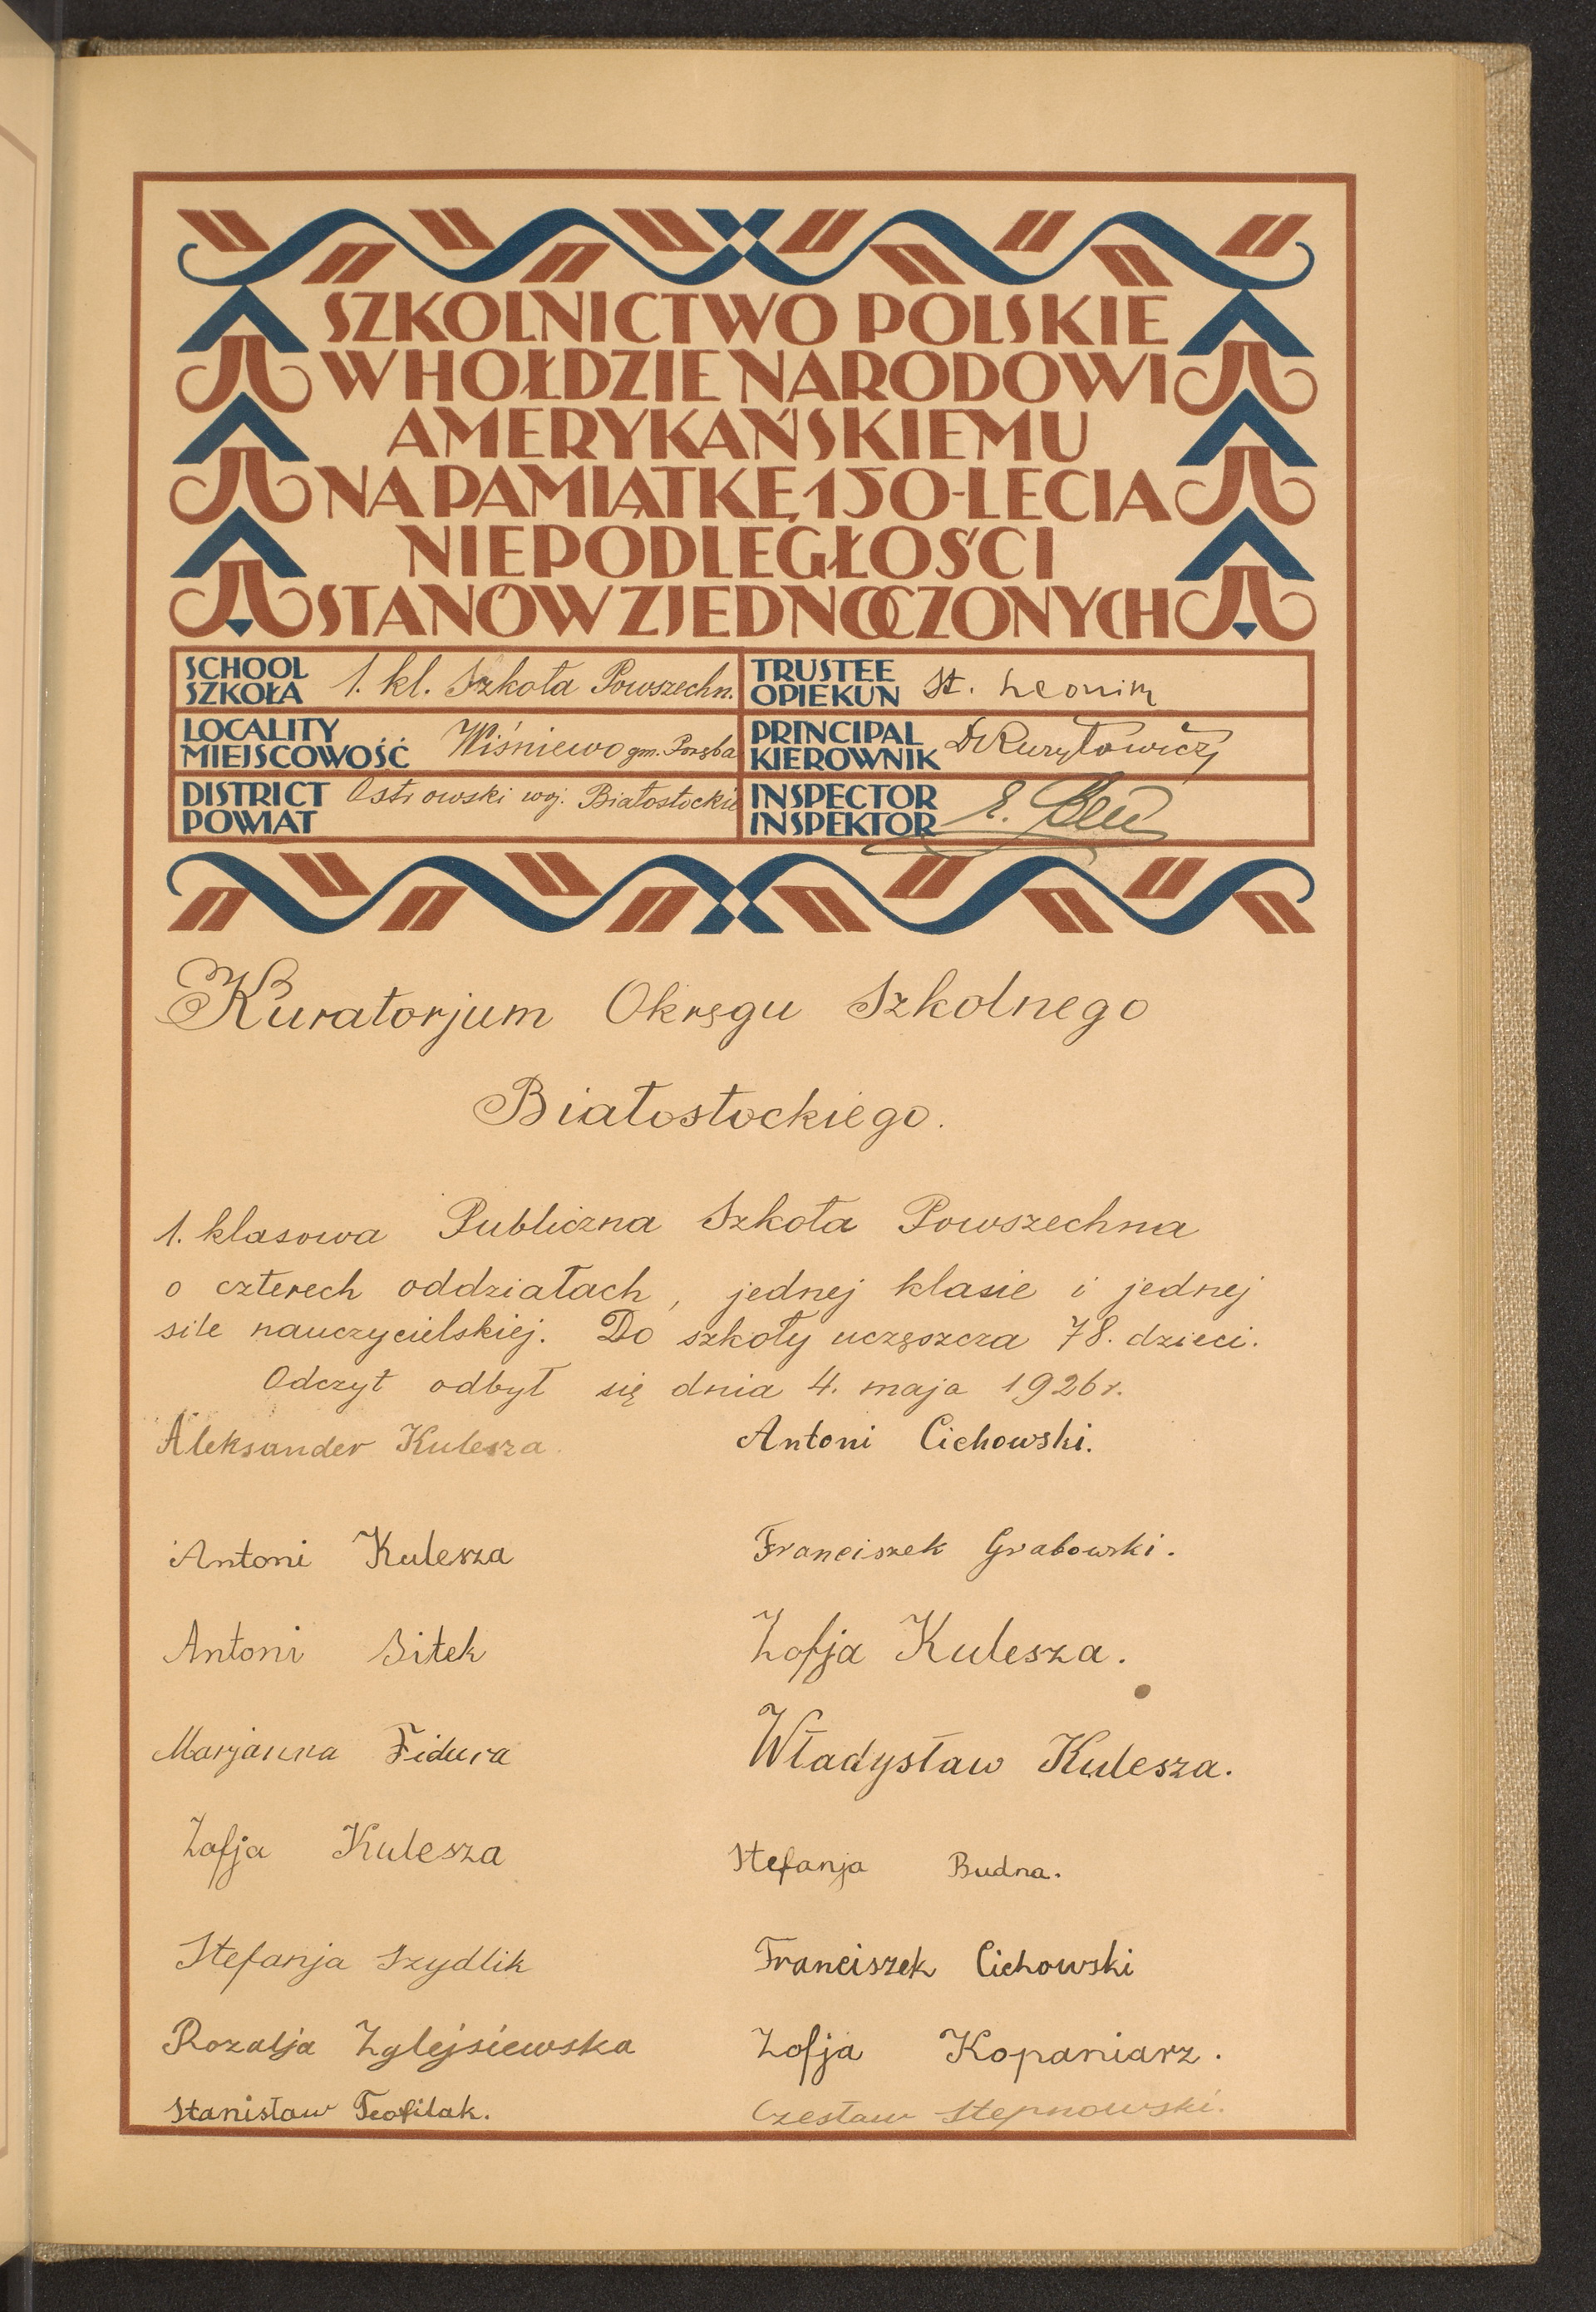 SZKOLNICTWO POLSKIE
W HOŁDZIE NARODOWI
AMERYKAŃSKIEMU
NA PAMIĄTKĘ 150-LECIA
NIEPODLEGŁOŚCI
STANÓW ZJEDNOCZONYCH
SCHOOL
SZKOŁA 1. kl. Szkoła Powszechn.
TRUSTEE
OPIEKUN St. Leonim
LOCALITY
MIEJSCOWOŚĆ Wiśniewo gm. Poręba
PRINCIPAL
KIEROWNIK
DISTRICT
POWIAT Ostrowski woj. Białostockie
INSPECTOR
INSPEKTOR E.
Kuratorjum Okręgu Szkolnego
Białostockiego.
1. klasowa Publiczna Szkoła Powszechna
o czterech oddziałach, jednej klasie i jednej
sile nauczycielskiej. Do szkoły uczęszcza 78. dzieci.
Odczyt odbył się dnia 4. maja 1926 r.
Aleksander Kulesza. Antoni Cichowski.
Antoni Kulesza Franciszek Grabowski.
Antoni Sitek Zofja Kulesza.
Marjanna Fidura Władysław Kulesza.
Zofja Kulesza Stefanja Budna.
Stefanja Szydlik Franciszek Cichowski
Rozalja Zglejsiewska Zofja Kopaniarz.
Stanisław Teofilak. Czesław Stepnowski.